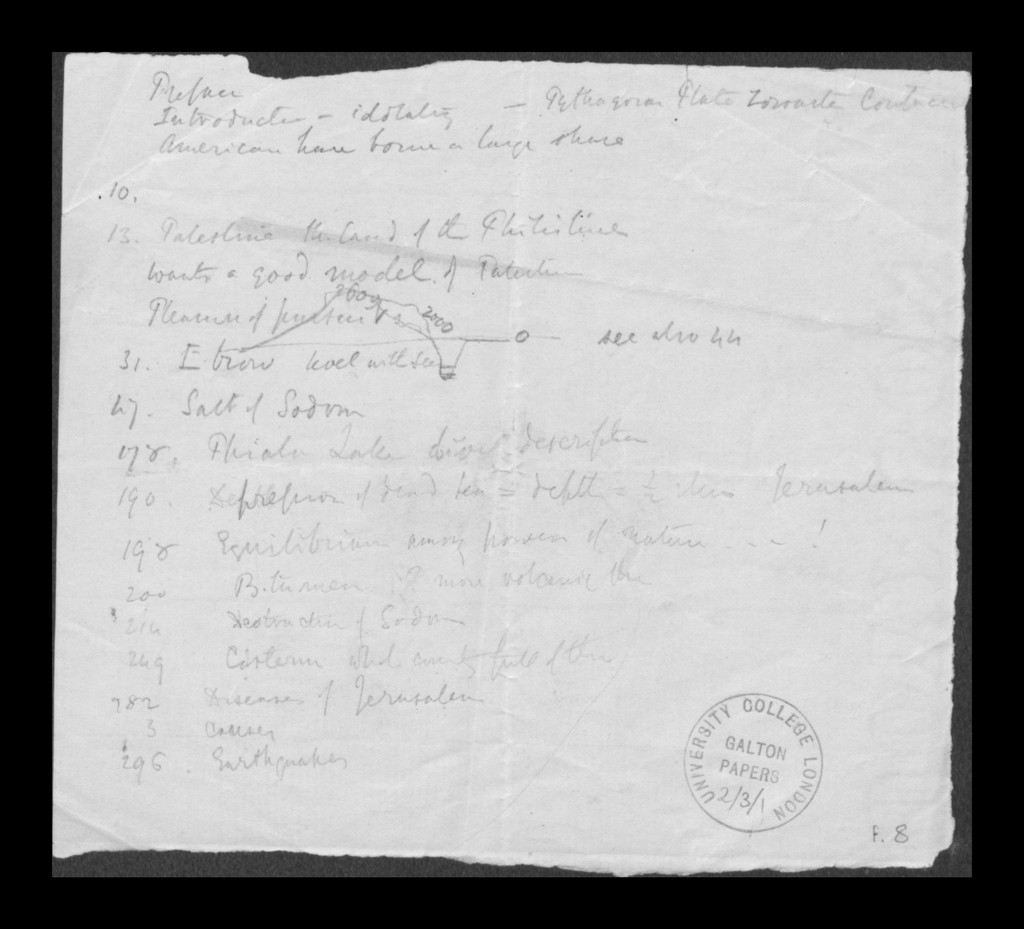 Preface
Introduction – idolatry – Pythagoras Plato Zoroaster
American have borne a large share
.10.
13. Palestine the land of the Philistines
wants a good model of Palestine
2600 2000
Pleasure of
see also 44
31. level with sea
47. Salt of Sodom
178. Phiala Lake description
190. Depression of dead sea = depth = ½ Jerusalem
198 Equilibrium among powers of nature - - - !
200 Bitumen ? more volcanic
214 Destruction of Sodom
249 Cisterns whole country full of them
282 Diseases of Jerusalem
3 causes
296. Earthquakes
UNIVERSITY COLLEGE LONDON
GALTON
PAPERS
2/3/1
F. 8